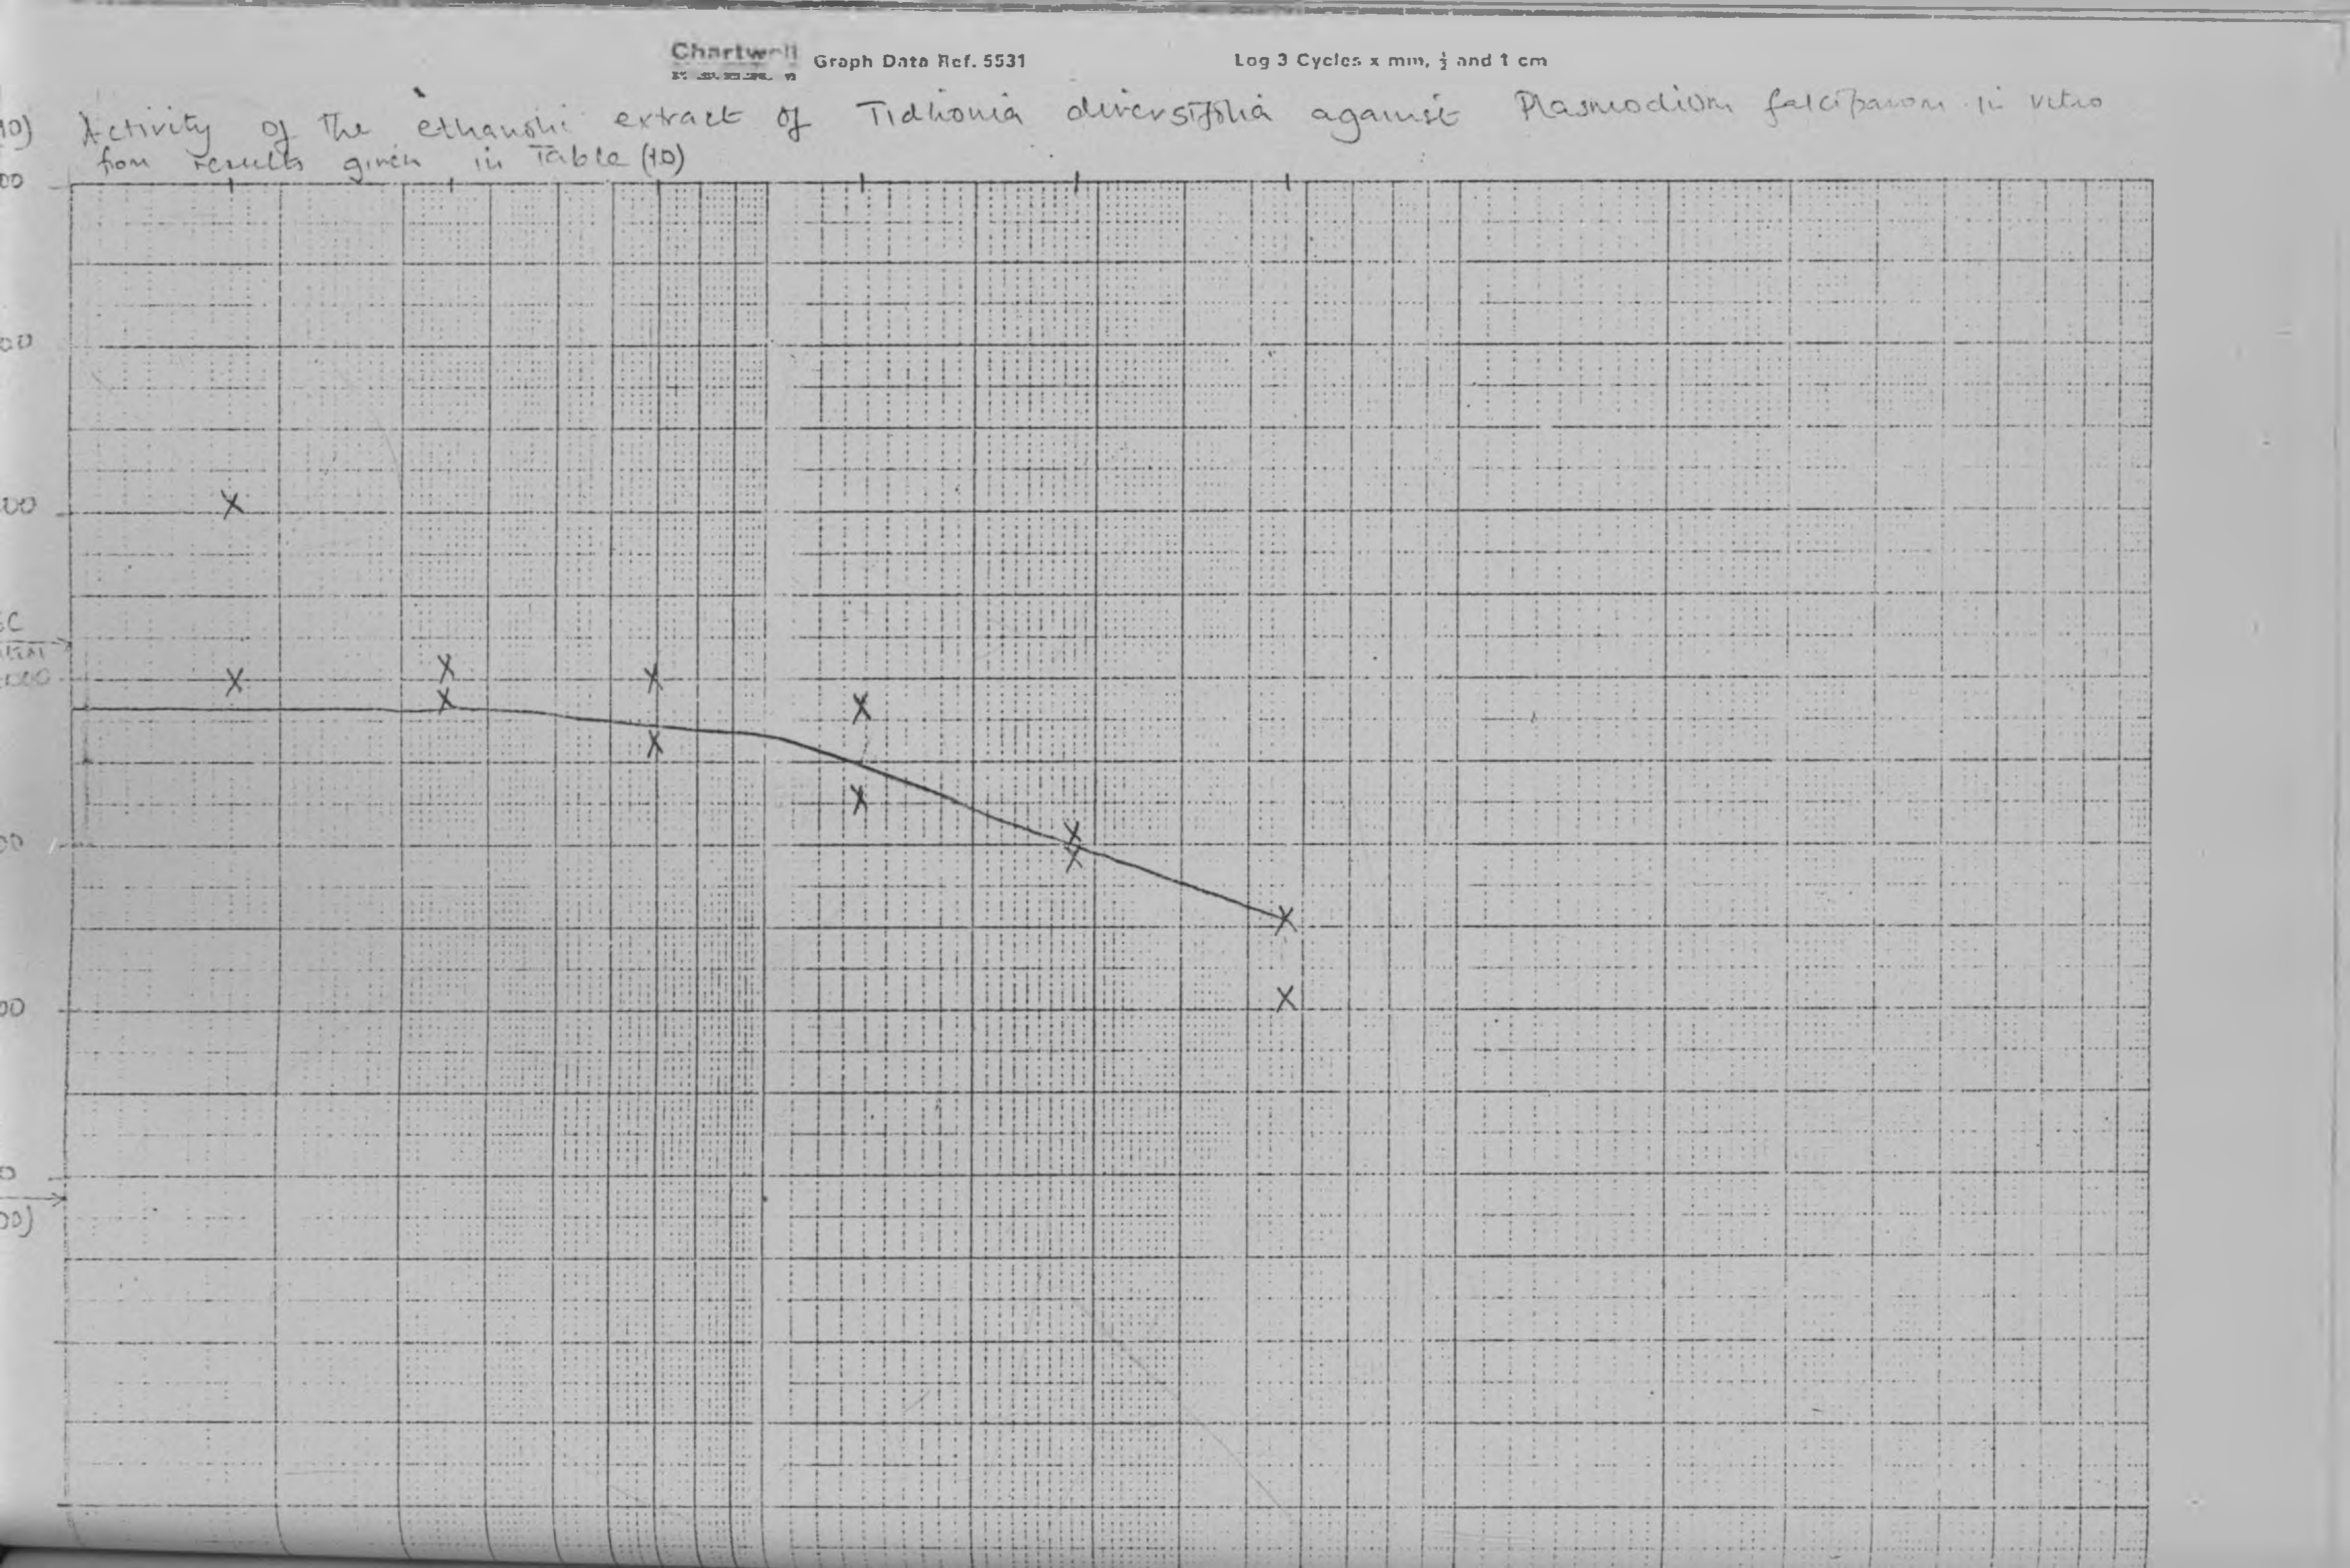 Chartwell Graph Data Ref. 5531 Log 3 Cycles x mm, ½ and 1 cm
10) Activity of the ethanolic extract of Tidhonia diversifolia against Plasmodium falciparum in vitro
from results given in Table (10)
00
00
00
000
00
00
0
00)